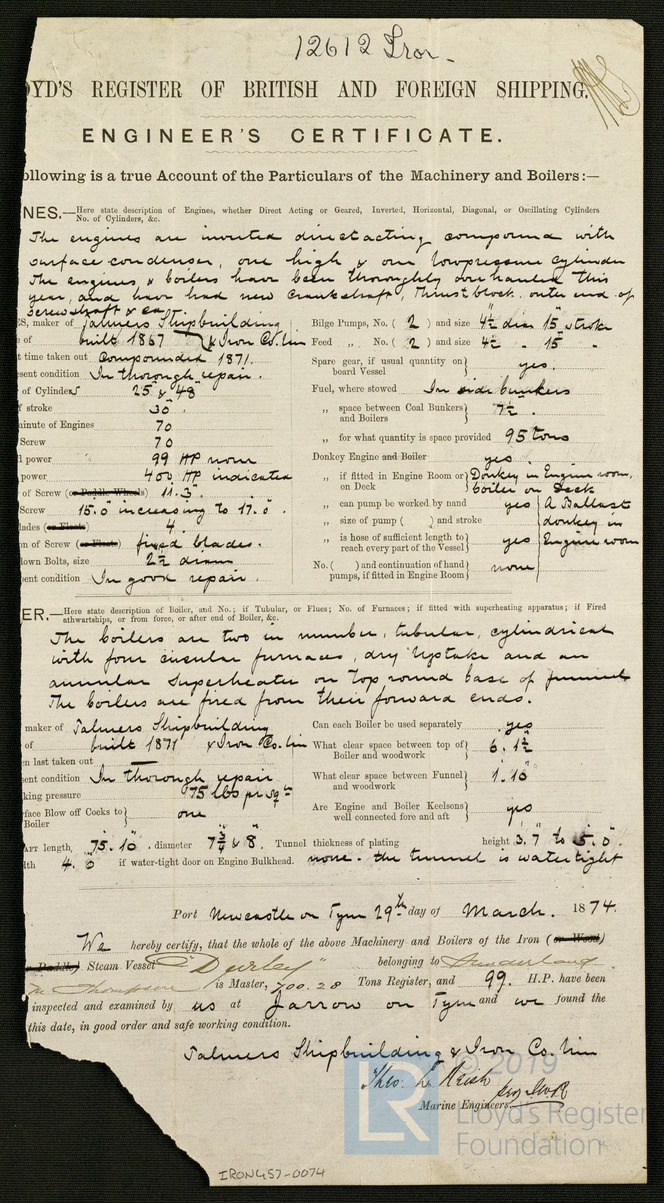 12612 Iron
OYD'S REGISTER OF BRITISH AND FOREIGN SHIPPING.
ENGINEER'S CERTIFICATE.
ollowing is a true Account of the Particulars of the Machinery and Boilers:—
NES.—Here state description of Engines, whether Direct Acting or Geared, Inverted, Horizontal, Diagonal, or Oscillating Cylinders
No. of Cylinders, &c.
The engines are inverted direct acting compound with
surface condenser, one high & one low pressure cylinder
The engines, & boilers have been thoroughly overhauled this
year, and have had new Crankshaft, Thrust block, outer end of
screw shaft &ca.
ES, maker of Palmers Shipbuilding
e of built 1867 & Iron Co. Lim
t time taken out Compounded 1871.
sent condition In thorough repair.
of Cylinders 25" & 48"
f stroke 30"
minute of Engines 70
Screw 70
l power 99 HP nom
power 400 HP indicated
of Screw (or Paddle Wheels) 11.3"
Screw 15.0 increasing to 17.0"
lades (or Floats) 4
on of Screw (or Floats) fixed blades.
lown Bolts, size 2½ diam
sent condition In good repair.
Bilge Pumps, No. ( 2 ) and size 4½ diam 15" stroke
Feed „ No. ( 2 ) and size 4½ " 15 "
Spare gear, if usual quantity on board Vessel } yes.
Fuel, where stowed In side bunkers
„ space between Coal Bunkers and Boilers } 7½".
„ for what quantity is space provided 95 tons
Donkey Engine and Boiler yes
„ if fitted in Engine Room or on Deck } Donkey in Engine room, boiler on Deck
„ can pump be worked by hand yes
„ size of pump ( ) and stroke
„ is hose of sufficient length to reach every part of the Vessel } yes
A Ballast donkey in Engine room
No. ( ) and continuation of hand pumps, if fitted in Engine Room } none
ER.—Here state description of Boiler, and No.; if Tubular, or Flues; No. of Furnaces; if fitted with superheating apparatus; if Fired
athwartships, or from force, or after end of Boiler, &c.
The boilers are two in number, tubular, cylindrical
with four circular furnaces, dry uptake and an
annular superheater on top round base of funnel
The boilers are fired from their forward ends.
maker of Palmers Shipbuilding
of built 1871 & Iron Co. Lim
en last taken out
sent condition In thorough repair
king pressure 75 lbs pr sq in
rface Blow off Cocks to Boiler } one
Can each Boiler be used separately yes
What clear space between top of Boiler and woodwork } 6.1½
What clear space between Funnel and woodwork } 1.10"
Are Engine and Boiler Keelsons well connected fore and aft } yes
length, 75.10" . diameter 7¾ & 8". Tunnel thickness of plating height 3.7 to 5.0"
dth 4.0 if water-tight door on Engine Bulkhead. none. the tunnel is watertight
Port Newcastle on Tyne 29th day of March. 1874.
We hereby certify, that the whole of the above Machinery and Boilers of the Iron (or Wood)
Paddle) Steam Vessel "Durley" belonging to Sunderland
Thompson is Master, 700.28 Tons Register, and 99. H.P. have been
inspected and examined by us at Jarrow on Tyne and we found the
this date, in good order and safe working condition.
Palmers Shipbuilding & Iron Co. Lim
Marine Engineers.
IRON457-0074
© 2019
LR
Lloyd's Register
Foundation